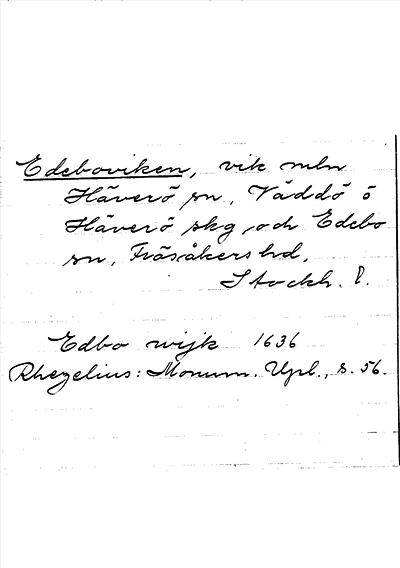 Edeboviken, vik mln
Häverö sn, Väddö ö
Häverö skg, och Edebo
sn, Fräsåkers hd,
Stockh. l.
Edbo wijk 1636
Rhezelius: Monum. Upl., s. 56.